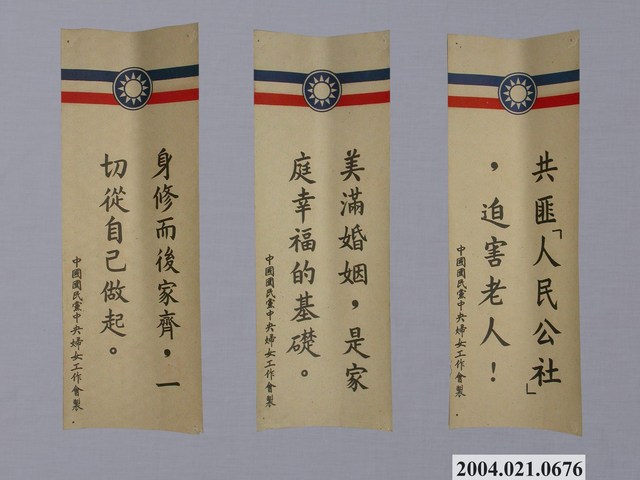 身修而後家齊，一
切從自己做起。
中國國民黨中央婦女工作會製
美滿婚姻，是家
庭幸福的基礎。
中國國民黨中央婦女工作會製
共匪「人民公社」
，迫害老人！
中國國民黨中央婦女工作會製
2004.021.0676